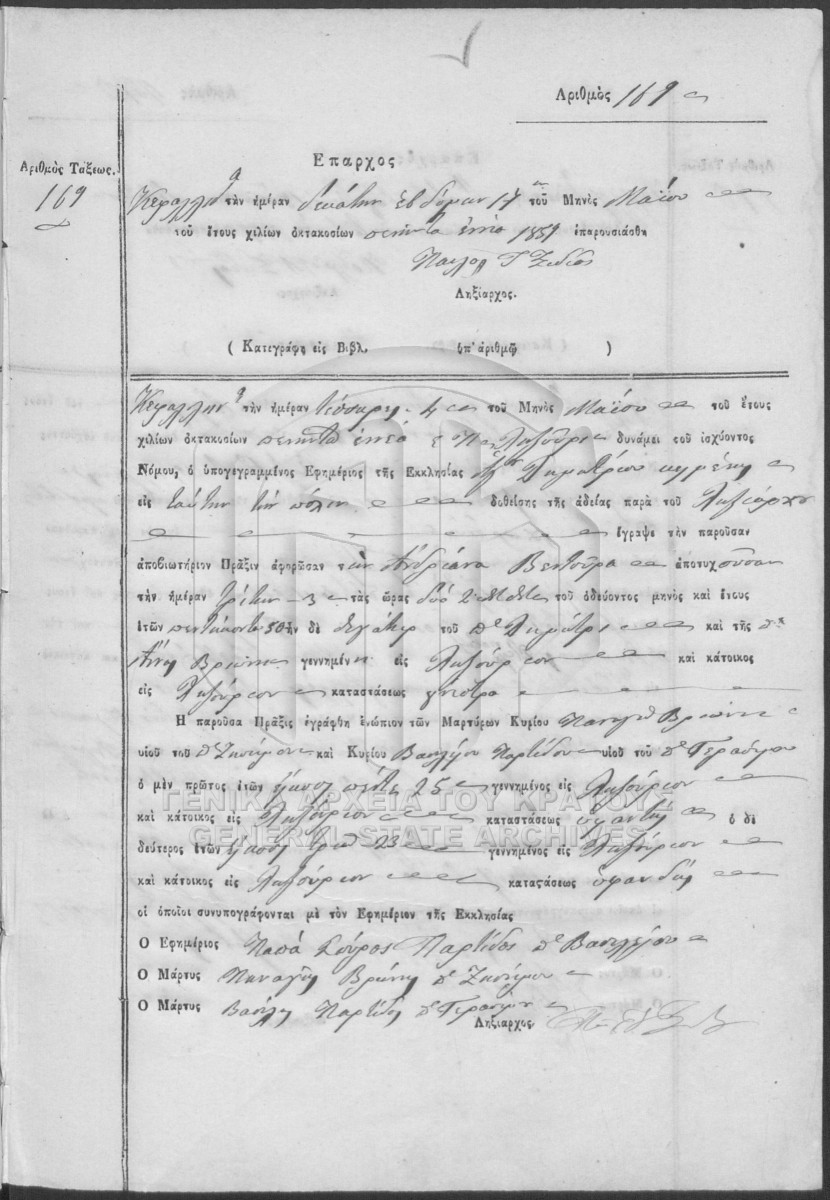 Αριθμὸς 169
Επαρχος
Αριθμὸς Τάξεως.
169
Κεφαλλη^α τὴν ἡμέραν δεκάτην ἑβδόμην 17 τοῦ Μηνὸς Μαΐου
τοῦ ἔτους χιλίων ὀκτακοσίων πενῆντα ἐννέα 1859 ἐπαρουσιάσθη
Παυλος
Ληξίαρχος.
( Κατεγράφη εἰς Βιβλ. ὑπ' ἀριθμῷ )
Κεφαλλην^α τὴν ἡμέραν τέσσαρες 4 τοῦ Μηνὸς Μαΐου τοῦ ἔτους
χιλίων ὀκτακοσίων πενῆντα ἐννέα Ληξούρι δυνάμει τοῦ ἰσχύοντος
Νόμου, ὁ ὑπογεγραμμένος Ἐφημέριος τῆς Ἐκκλησίας Ἁγ Δημητρίου κειμένης
εἰς ταύτην τὴν πόλιν δοθείσης τῆς ἀδείας παρὰ τοῦ Ληξιάρχου
ἔγραψε τὴν παροῦσαν
ἀποβιωτήριον Πρᾶξιν ἀφορῶσαν τὴν Ανδριάνα Βεντούρα ἀποτυχοῦσαν
τὴν ἡμέραν τρίτην 3 τὰς ὥρας δύο 2 τοῦ ὁδεύοντος μηνὸς καὶ ἔτους
ἐτῶν πεντήκοντα 50 ἦν δὲ θεγάτηρ τοῦ π^ε Δημήτρη καὶ τῆς π^ε
Άννης Βρώνη γεννημένη εἰς Ληξούριον καὶ κάτοικος
εἰς Ληξούριον καταστάσεως γνέστρα
Ἡ παροῦσα Πρᾶξις ἐγράφθη ἐνώπιον τῶν Μαρτύρων Κυρίου Παναγῆ Βρώνη
υἱοῦ τοῦ π^ε Ζησίμου καὶ Κυρίου Βασιλείου Παρτίδου υἱοῦ τοῦ π^ε Γερασίμου
ὁ μὲν πρῶτος ἐτῶν εἴκοσι πέντε 25 γεννημένος εἰς Ληξούριον
καὶ κάτοικος εἰς Ληξούριον καταστάσεως ὑφαντής ὁ δὲ
δεύτερος ἐτῶν εἴκοσι τρία 23 γεννημένος εἰς Ληξούριον
καὶ κάτοικος εἰς Ληξούριον καταστάσεως ὑφαντής
οἱ ὁποῖοι συνυπογράφονται μὲ τὸν Ἐφημέριον τῆς Ἐκκλησίας
Ο Ἐφημέριος Παπά Σπύρος Παρτίδος π^ε Βασιλείου
Ο Μάρτυς Παναγῆς Βρώνης π^ε Ζησίμου
Ο Μάρτυς Βασίλης Παρτίδης π^ε Γερασίμου
Ληξίαρχος,
ΓΕΝΙΚΑ ΑΡΧΕΙΑ ΤΟΥ ΚΡΑΤΟΥΣ
GENERAL STATE ARCHIVES